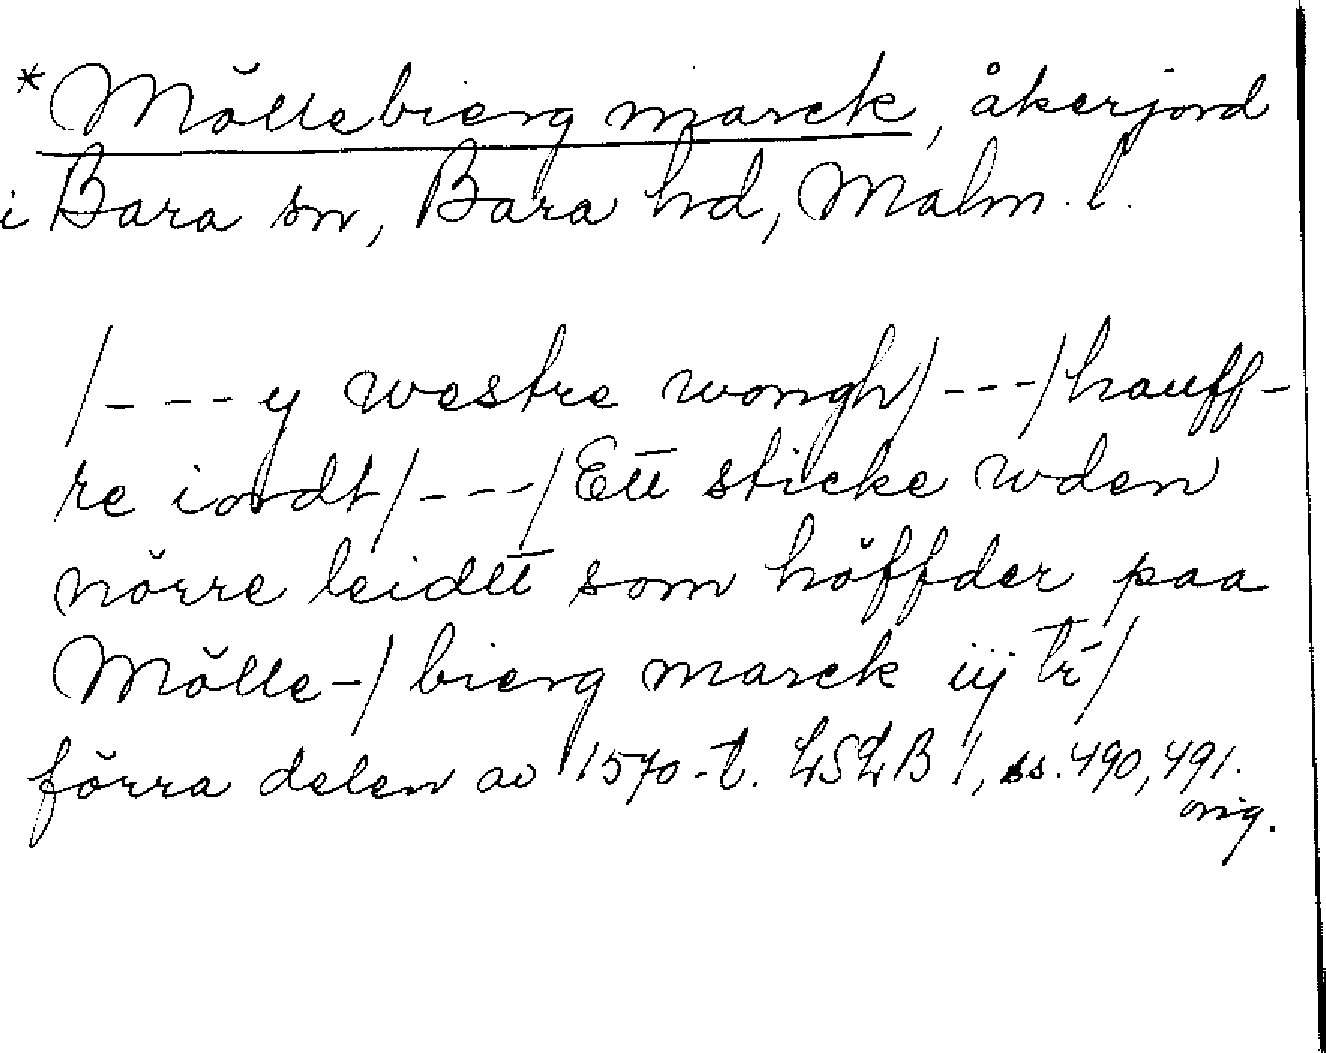 *Mŏllebierg marck, åkerjord
i Bara sn, Bara hd, Malm. l.
/---y westre wongh/---/hauff-
re iordt/---/Ett sticke wden
nŏrre leidet som hŏffder paa
Mŏlle-/bierg marck iij tr/
fŏrra delen av 1570-t. LSLB 1, ss. 490, 491.
orig.